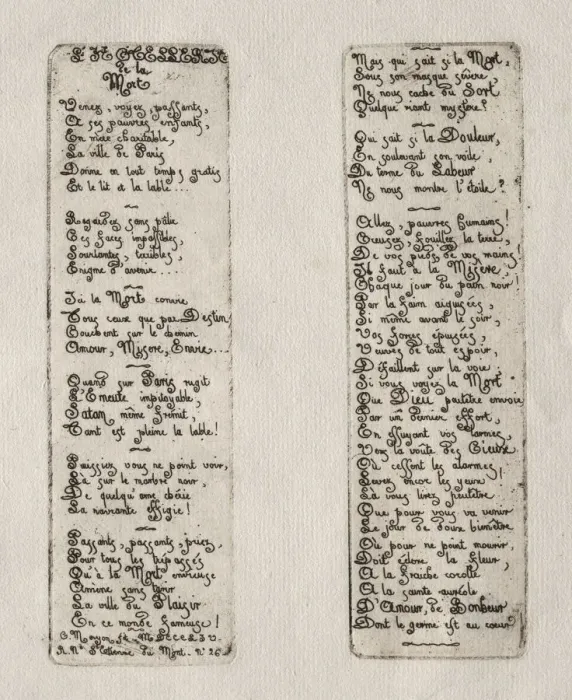 L'HOTELLERIE
de la
Mort
Venez, voyez, passants,
A ses pauvres enfants,
En mère charitable,
La ville de Paris
Donne en tout temps gratis
Et le lit et la table...
Regardez sans pâlir
Ces faces impassibles,
Souriantes, terribles,
Enigme d'avenir....
Ici la Mort convie
Tous ceux que par Destin
Couchent sur le chemin
Amour, Misere, Envie...
Quand sur Paris rugit
L'Emeute impitoyable,
Satan même frémit,
Tant est pleine la table!
Puissiez vous ne point voir,
Là sur le marbre noir,
De quelqu'ame chérie
La navrante effigie!
Passants, passants, priez,
Pour tous les trépassés
Qu'à la Mort envieuse
Amène sans tarir
La ville du Plaisir
En ce monde fameuse!
C. Meryon ft.
R. Ne St Etienne du Mont. No 26
Mais qui sait si la Mort,
Sous son masque sévère,
Ne nous cache du Sort
Quelque riant mystère!
Qui sait si la Douleur,
En soulevant son voile,
Du terme du Labeur
Ne nous montre l'étoile?
Allez, pauvres humains!
Creusez, fouillez la terre,
De vos pieds, de vos mains!
Il faut à la Misère,
Chaque jour du pain noir!
Par la faim aiguisées,
Si même avant le soir,
Vos forces épuisées,
Veuves de tout espoir,
Défaillent sur la voie;
Si vous voyez la Mort
Que Dieu peutêtre envoie
Par un dernier effort,
En essuyant vos larmes,
Vers la voûte des Cieux
Où cessent les alarmes!
Levez encor les yeux!
Là vous lirez peutêtre
Que pour vous va venir
Le jour de doux bienêtre
Où pour ne point mourir,
Doit éclore la fleur,
A la fraîche corolle
A la sainte auréole
D'Amour, de Bonheur
Dont le germe est au cœur!